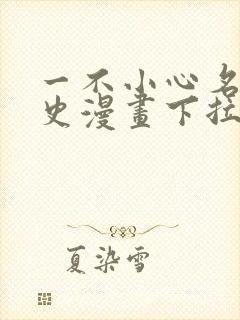 一不小心名
史漫畫下拉
夏染雪